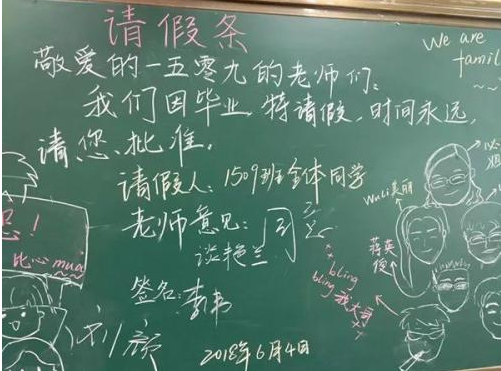 请假条
敬爱的一五零九的老师们:
我们因毕业,特请假,时间永远,
请您批准。
请假人:1509班全体同学
老师意见:同意
谈艳兰
签名:李书
刘
2018年6月4日
We are
famil
~~
!
比心 mua
WuLi美丽
蒋英俊
bling
bling